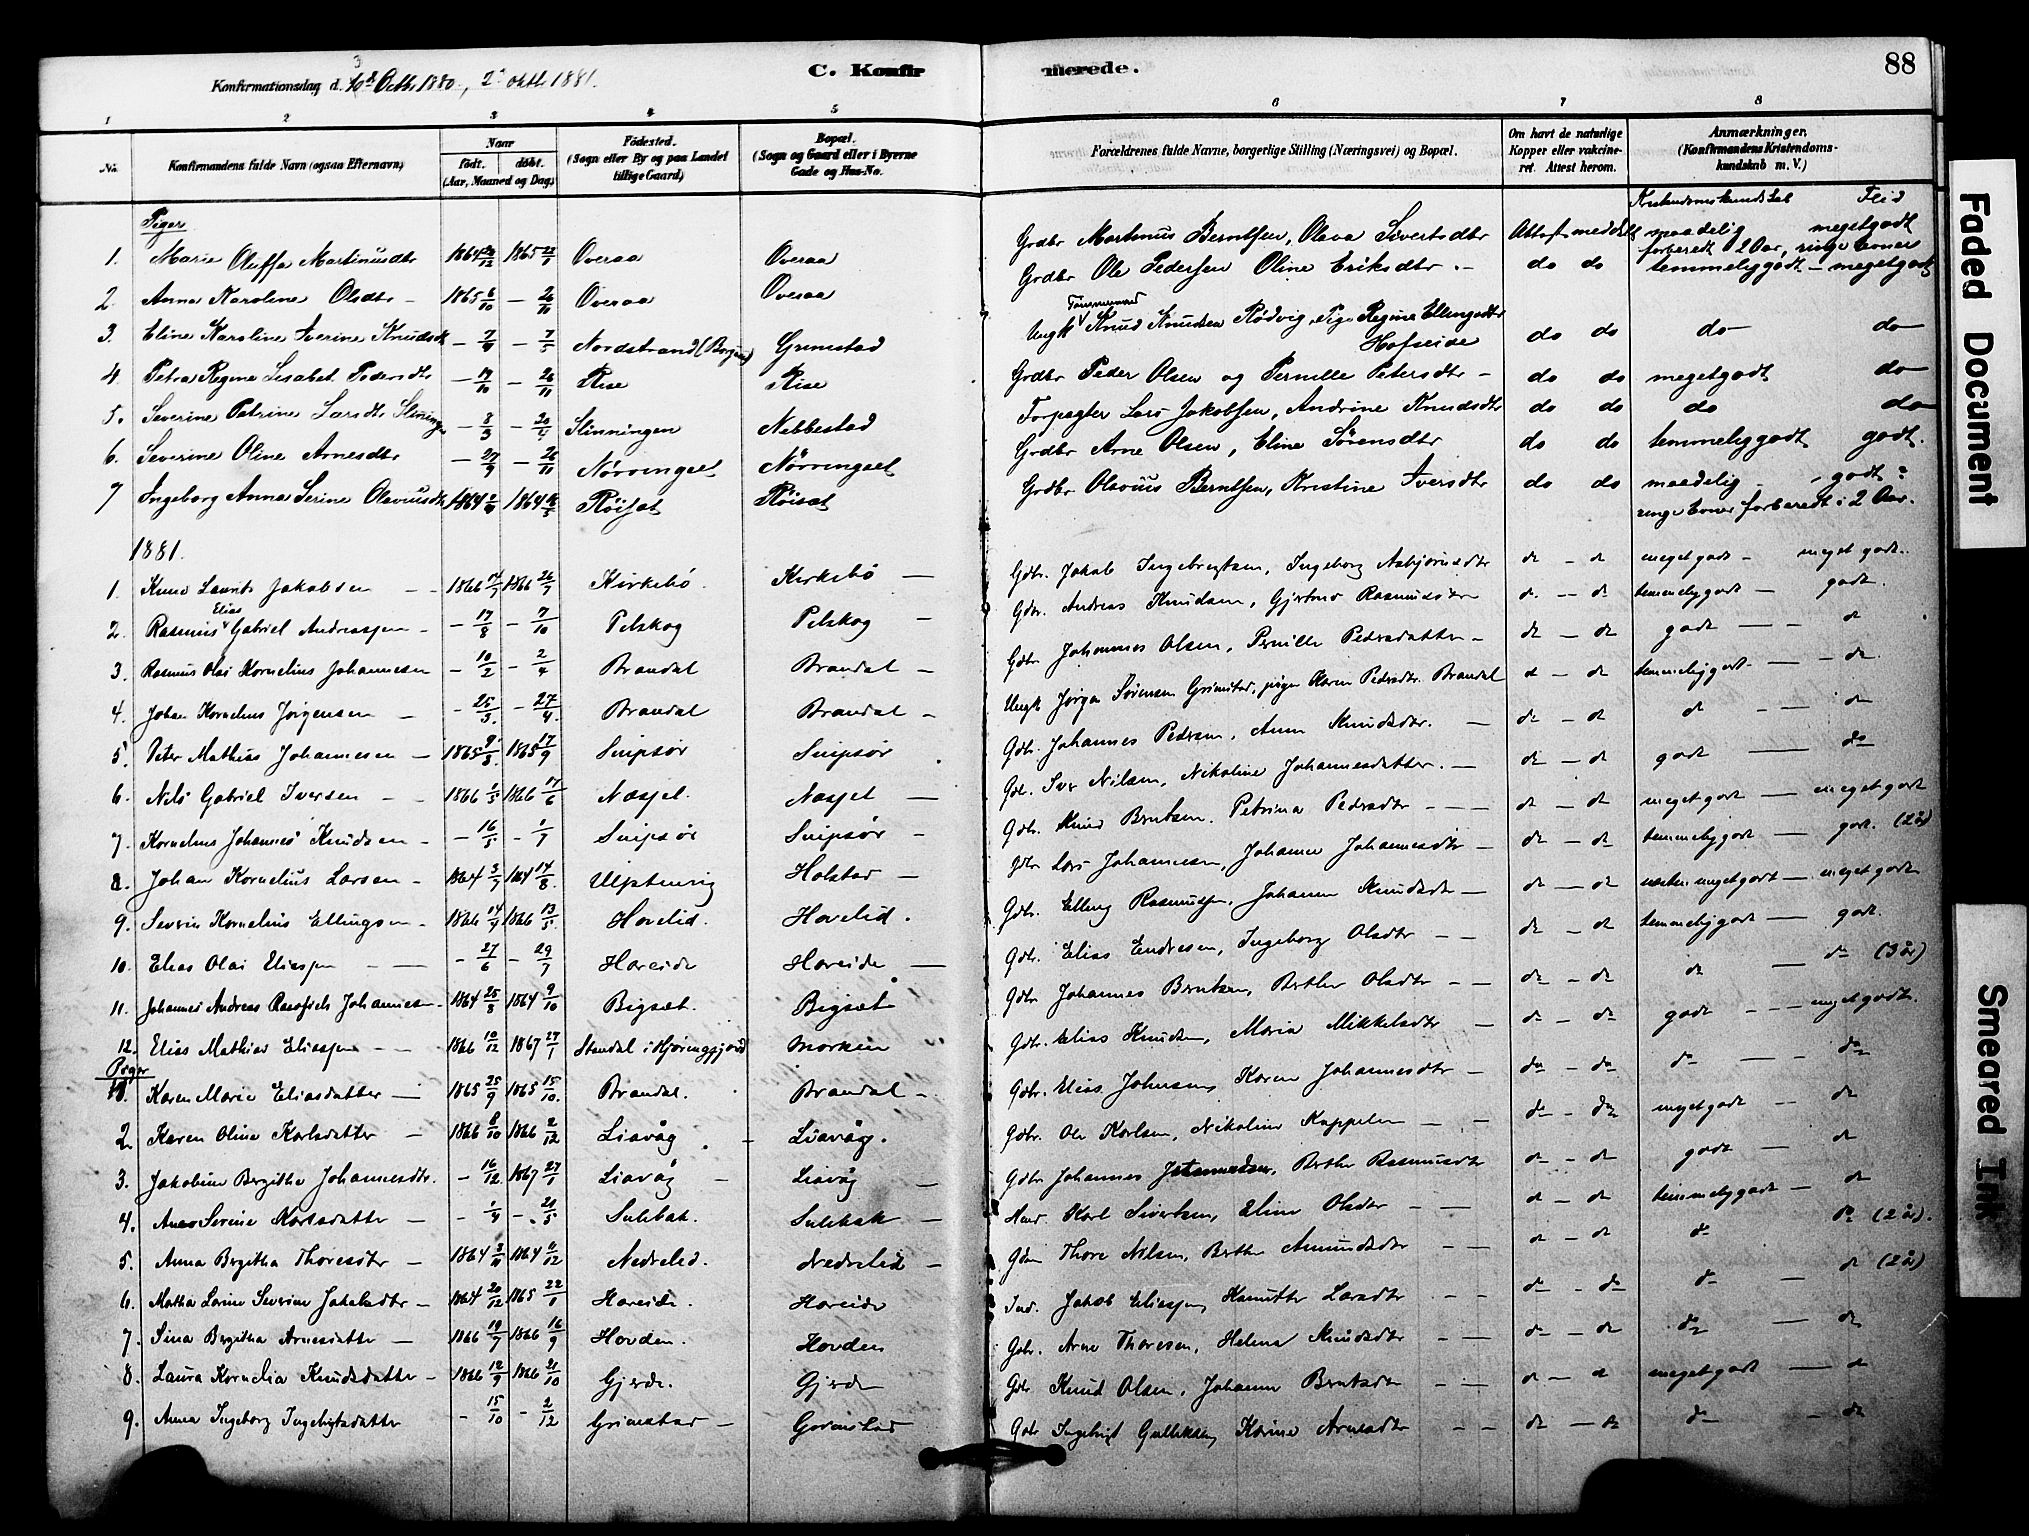 88
C. Konfirmerede.
Konfirmationsdag d. 3 Octb. 1880, 2 oktb 1881.
1 2 3 4 5 6 7 8
No. Konfirmandens fulde Navn (ogsaa Efternavn) Naar født. døbt. (Aar, Maaned og Dag) Fødested. (Sogn eller By og paa Landet tillige Gaard) Bopæl. (Sogn og Gaard eller i Byerne Gade og Hus-No. Forældrenes fulde Navne, borgerlige Stilling (Næringsvei) og Bopæl. Om havt de naturlige Kopper eller vaccineret. Attest herom. Anmærkninger. (Konfirmandens Kristendomskundskab m. V.)
Kristendomskundskab Flid
Piger
1. Marie Oluffa Martinusdtr 1864 12 1865 1 Overaa Overaa Grdbr Martinus Berntsen, Olava Sivertsdtr Attest meddelt maadelig megetgodt
forberedt 2 Aar, ringe Evner
2. Anna Karoline Olsdtr 1865 6/10 — 26/11 Overaa Overaa Grdbr Ole Pedersen Oline Eriksdtr do do temmeliggodt — megetgodt
3. Eline Karoline Iverine Knudsdt — 7/4 — 7/5 Nordstrand (Borgund) Grimstad Ungk Knud Knudsen Rødvig, Pige Regine Ellingsdtr Hofseide do do do do
4. Petra Regine Lisabet Pedersdtr — 17/10 — 26/11 Rise Rise Grdbr Peder Olsen og Pernille Petersdtr do do megetgodt do
5. Severine Petrine Larsdtr Slinningen — 8/3 — 20/4 Slinningen Nebbestad Forpagter Lars Jakobsen, Andrine Knudsdtr do do do do
6. Severine Oline Arnesdtr — 27/9 — 26/11 Nørvingset Nørvingset Grdbr Arne Olsen, Eline Sørensdtr do do temmeliggodt godt.
7 Ingeborg Anna Serine Olavusdt 1864 1864 Røiset Røiset Grdbr Olavus Berntsen, Kristine Iversdtr do do maadelig godt
ringe Evner forberedt i 2 Aar.
1881.
1. Knud Laurits Jakobsen 1866 1866 26/7 Kirkebø. Kirkebø Gdbr. Jakob Ingebrigtsen, Ingeborg Asbjørnsdtr d — d megetgodt meget godt.
2. Rasmus Elias Gabriel Andreassen — 17/8 — 7/10 Pilskog Pilskog Gdbr. Andreas Knudsen, Gjertine Rasmusdtr d — d temmeliggodt — godt.
3. Rasmus Olai Kornelius Johannesen — 10/2 — 2/4 Brandal Brandal Gdbr Johannes Olsen, Pernille Pedersdatter d — d godt — d
4. Johan Kornelius Jørgensen — 25/3. — 27/4. Brandal Brandal Ungk Jørgen Sørensen Grimstad, pige Karen Pedersdtr. Brandal d — d temmeliggodt — d
5. Peter Mathias Johannesen 1865 1865 17/9 Snipsør Snipsør Gdbr. Johannes Pedersen, Anne Knudsdtr. d — d d — d
6. Nils Gabriel Iversen 1866 1/5 1866 17/6 Nasjet. Nasjet Gdbr. Iver Nilsen, Nikoline Johannesdatter. d — d godt do
7. Kornelius Johannes Knudsen — 16/5 — 1/7 Snipsør Snipsør Gdbr. Knud Berntsen. Petrina Pedersdtr d — d megetgodt — megetgodt
8. Johan Kornelius Larsen 1864 3/7 1864 14/8. Ulstenvig Holstad Gdbr Lars Johannesen, Johanne Johannesdtr d — d temmeliggodt — godt. (2 år)
9. Severin Kornelius Ellingsen 1866 14/4 1866 13/5. Hovlid. Hovlid. Gdbr. Elling Rasmussen, Johanne Knudsdtr d — d næsten megetgodt — megetgodt
10. Elias Olai Eliassen — 27/6 — 29/7 Hareide Hareide Gdbr. Elias Endresen, Ingeborg Olsdtr d — d temmeliggodt — godt.
11. Johannes Andreas Johannesen 1864 25/8 1864 9/10 Bigset. Bigset Gdbr Johannes Berntsen, Berthe Olsdtr d — d d — d (3 år)
12. Elias Mathias Eliassen 1866 10/12 1867 27/1 Standal i Hjøringfjord Gdbr. Elias Knudsen, Maria Mikkelsdtr d — d godt — megetgodt.
Piger
1. Karen Marie Eliasdatter 1865 25/9 1865 15/10. Brandal. Brandal Gdbr. Elias Johnsen, Karen Johannesdtr d — d d — d
2 Karen Oline Karlsdatter 1866 6/10 1866 2/12 Liavåg Liavåg. Gdbr. Ole Karlsen, Nikoline Kappelen d — d megetgodt d
3. Jakobine Bergitha Johannesdtr. — 16/12 1867 27/1 Liavåg Liavåg Gdbr Johannes, Berthe Rasmusdtr d — d godt — d
4. Ane Serine Karlsdatter — 1/4 — 21/5 Sulebak. Sulebak Karl Sivertsen, Eline Olsdtr d — d temmeliggodt — d
5. Anna Bergitha Thoresdtr 1864 1864 Nedrelid. Nedrelid Thore Nilsen, Berthe Amundsdtr d — d d d (2 år).
6. Martha Lovise Severine Jakobsdtr 1864 20/12 1865 22/1 Hareide. Hareide Ind. Jakob Eliassen, Larsdtr d — d d d (2 år)
7. Sina Bergitha Arnesdatter 1866 19/7 1866 16/9 Hovden. Hovden Gdbr. Arne Thoresen, Helene Knudsdtr d — d d d
8. Laura Kornelia Knudsdatter 1866 12/9 1866 21/10 Gjerde. Gjerde Gdbr Knud Olsen, Johanne Berntsdtr d — d megetgodt — d
9. Anna Ingeborg Ingebrigtsdatter — 15/10 — 2/12 Grimstad Grimstad Gdbr Ingebrigt Gulliksen, Karine Arnesdtr d — d d — d
Faded Document
Smeared Ink